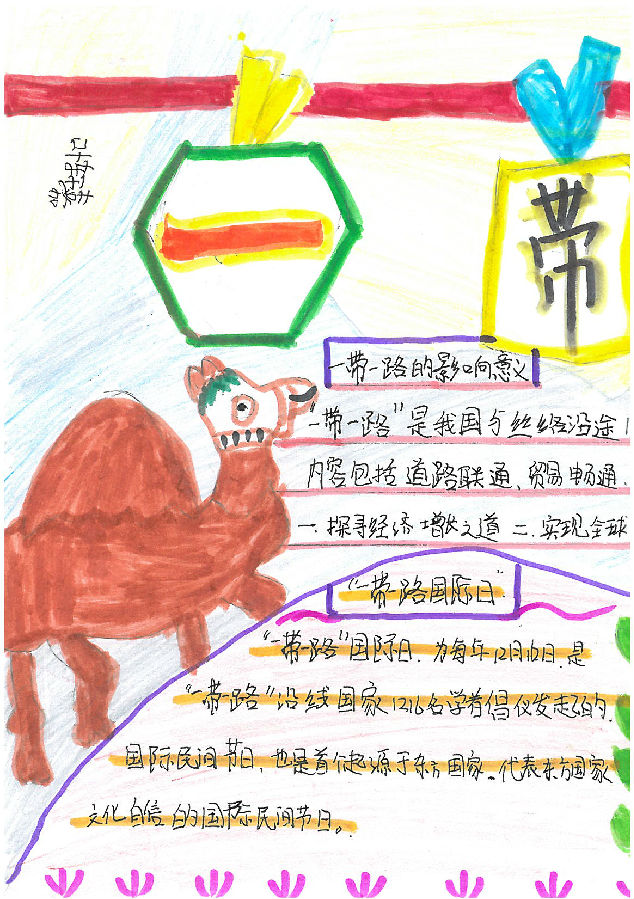 一
带
一带一路的影响意义
"一带一路"是我国与丝绸沿途
内容包括道路联通、贸易畅通、
一.探寻经济增长之道 二.实现全球
"一带一路国际日"
"一带一路"国际日,为每年12月16日,是
"一带一路"沿线国家1216名学者倡仪发起的.
国际民间节日,也是首个起源于东方国家。代表东方国家
文化自信的国际民间节日。